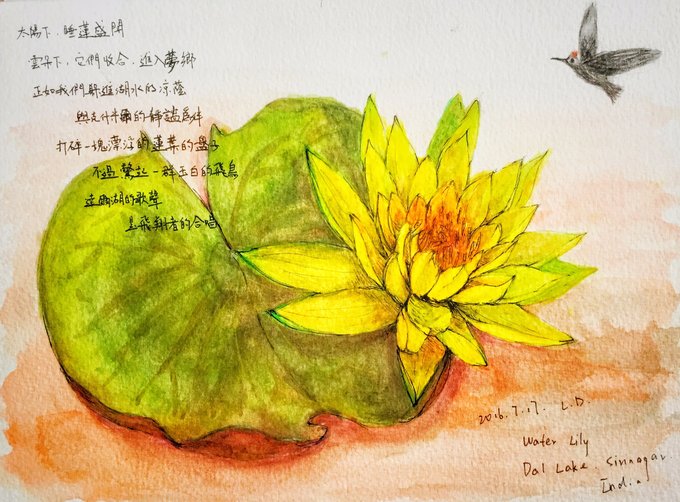 太陽下，睡蓮盛開
雲朵下，它們收合，進入夢鄉
正如我們躲進湖水的涼蔭
與克什米爾的靜謐為伴
打碎一塊漂浮的蓮葉的盘子
不過驚起一群玉白的飛鳥
達爾湖的歌聲
是飛翔者的合唱
2016.7.17. L.D.
Water Lily
Dal Lake. Srinagar
India